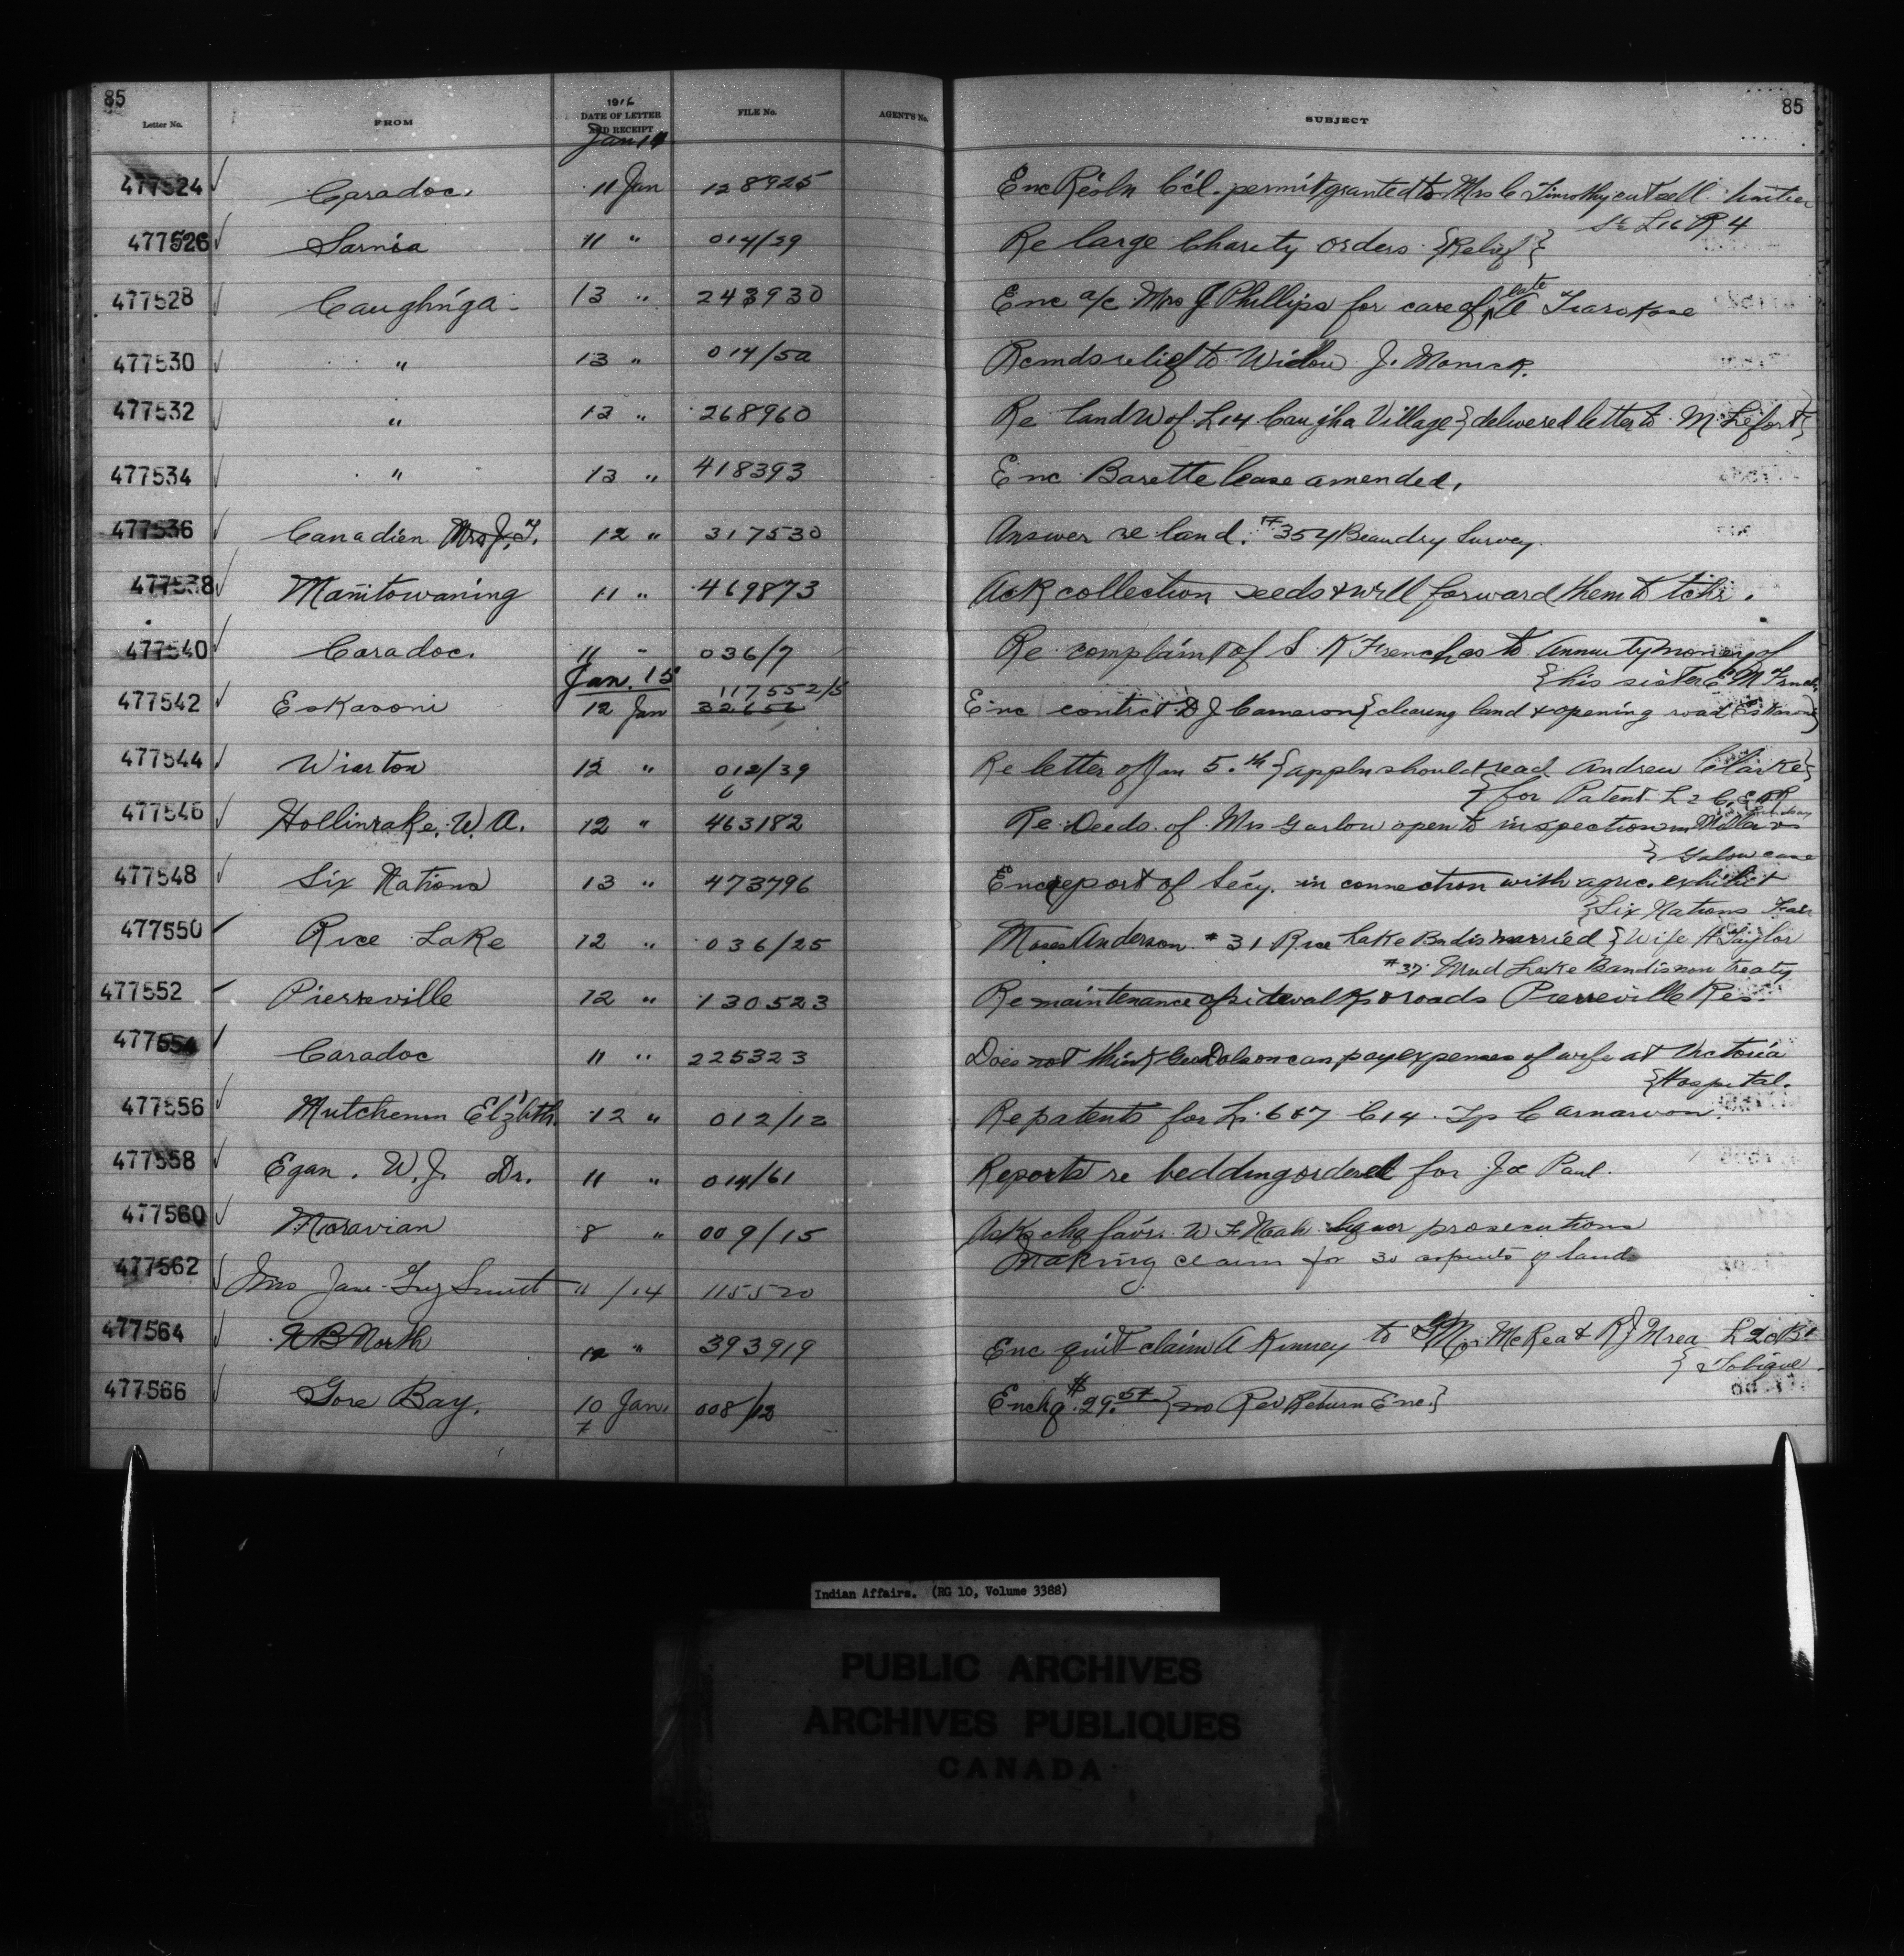 85 85
Letter No. FROM 1916 DATE OF LETTER AND RECEIPT FILE No. AGENT'S No. SUBJECT
Jan 14
477524 Caradoc. 11 Jan 128925 Enc Resln C'cl. permit granted to Mrs C Timothy cut & sell timber
L16 R4
477526 Sarnia 11 " 014/29 Re large Charity orders {Relief}
477528 Caughn'ga 13 " 243930 Enc a/c Mrs J Phillips for care of late
477530 " 13 " 014/50 Rcmds relief to Widow J.
477532 " 13 " 268960 Re land W of L14 Caugha Village {delivered letter to M. Lefort}
477534 " 13 " 418393 Enc Barette lease amended.
477536 Canadien Mrs J. T. 12 " 317530 Answer re land. # 354 Beaudry Survey.
477538 Manitowaning 11 " 469873 Ack collection seeds & will forward them to tchr.
477540 Caradoc. 11 " 036/7 Re complaint of S K French as to Annuity money of
{his sister E M French
Jan. 15
117552/5
477542 Eskasoni 12 Jan 32656 Enc contrct D J Cameron {clearing land & opening road Eskasoni}
477544 Wiarton 12 " 012/39 Re letter of Jan 5.th {appln should read Andrew Clarke}
6 {for Patent L 2 C,
477546 Hollinrake, W. A. 12 " 463182 Re Deeds of Mrs Garlow open to inspection in Miller v
{ Galow case
477548 Six Nations 13 " 473796 Enc report of Sécy. in connection with agric. exhibit
{Six Nations Fair
477550 Rice Lake 12 " 036/25 Moses Anderson # 31 Rice Lake Bnd is married {Wife H Taylor
# 37 Mud Lake Band is non treaty
477552 Pierreville 12 " 130523 Re maintenance of sidewalks & roads Pierreville Res
477554 Caradoc 11 " 225323 Does not think Geo Dolson can pay expenses of wife at Victoria
{Hospital.
477556 Mutchenm Elz'bth. 12 " 012/12 Re patents for Ls. 6 & 7 C14 Tp Carnarvon.
477558 Egan. W. J. Dr. 11 " 014/61 Reports re bedding ordered for Joe Paul.
477560 Moravian 8 " 009/15 Asks chq favr. W F Noah liquor prosecutions
477562 Mrs Jane 11/14 115520 Making claim for 30 arpents of land
477564 N B North 12 " 393919 Enc quit claim A Kinney to McRea &
{ Tobique
477566 Gore Bay. 10 Jan. 008/12 Enc chq. $29.54 {no Rev Return Enc.}
7
Indian Affairs. (RG 10, Volume 3388)
PUBLIC ARCHIVES
ARCHIVES PUBLIQUES
CANADA